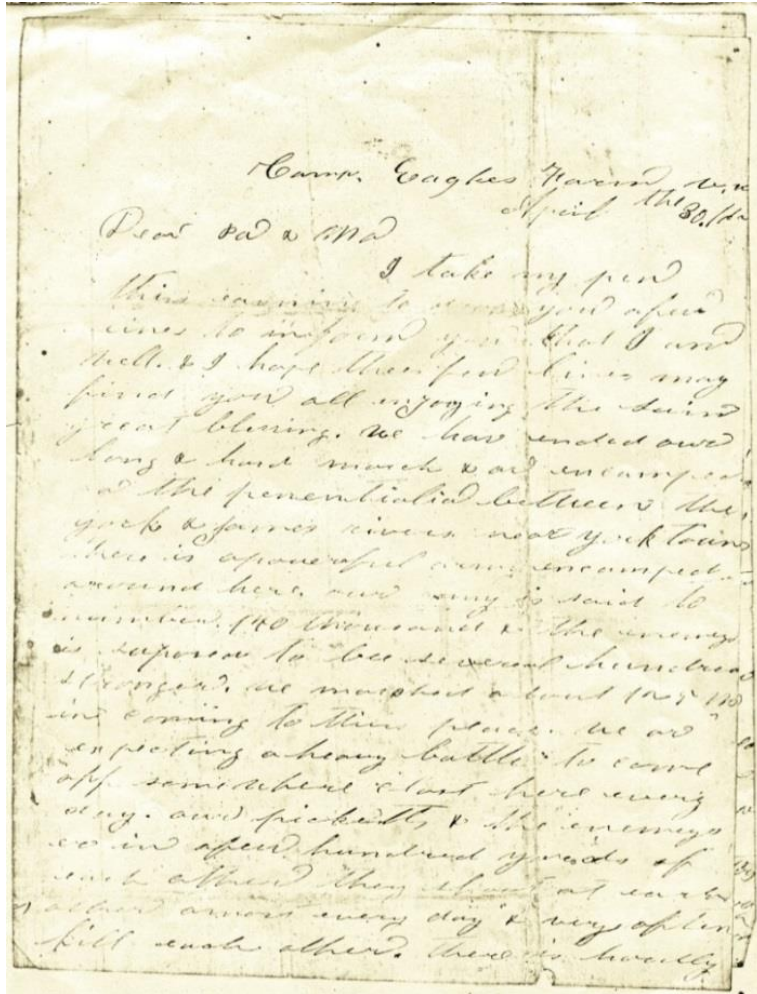 Camp. Eagles Farm
April the 30.
Dear Pa & Ma
I take my pen
this eavning to you afew
lines to inform you that I am
well. & I hope these few lines may
find you all enjoying the saim
great blessing. we hav ended owr
long & hard march & ar encamped
the penentialia between the
york & James rivers near york town
ther is apowerful army encamped
around here. our army is said to
number. 140 thousand & the enemy
is suposed to bee several hundred
stronger. we marched about
in coming to this place. we ar
expecting a heavy battle to come
off somewhere clost here every
day. our picketts & the enemys
in afew hundred yards of
each other they shoot at each
other every day & very often
kill each other. there is hardly